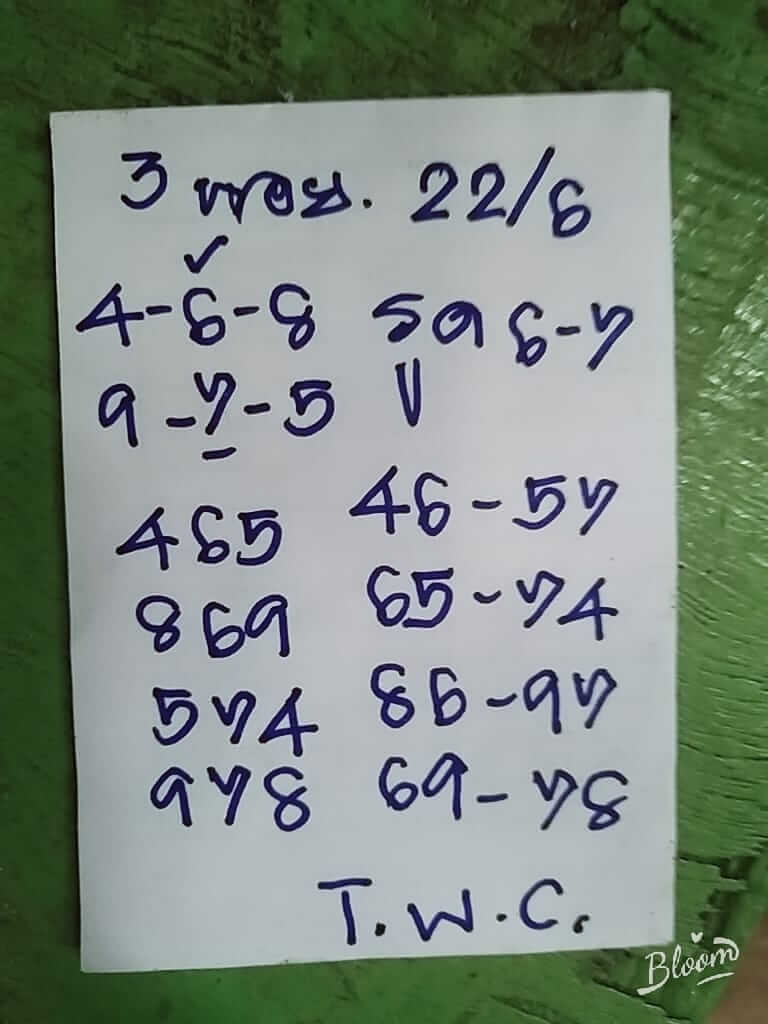 3 22/6
✓
4-6-8 รด 6-7
9-7-5 V
465 46-57
869 65-74
574 86-97
978 69-78
T.W.C.
Bloom